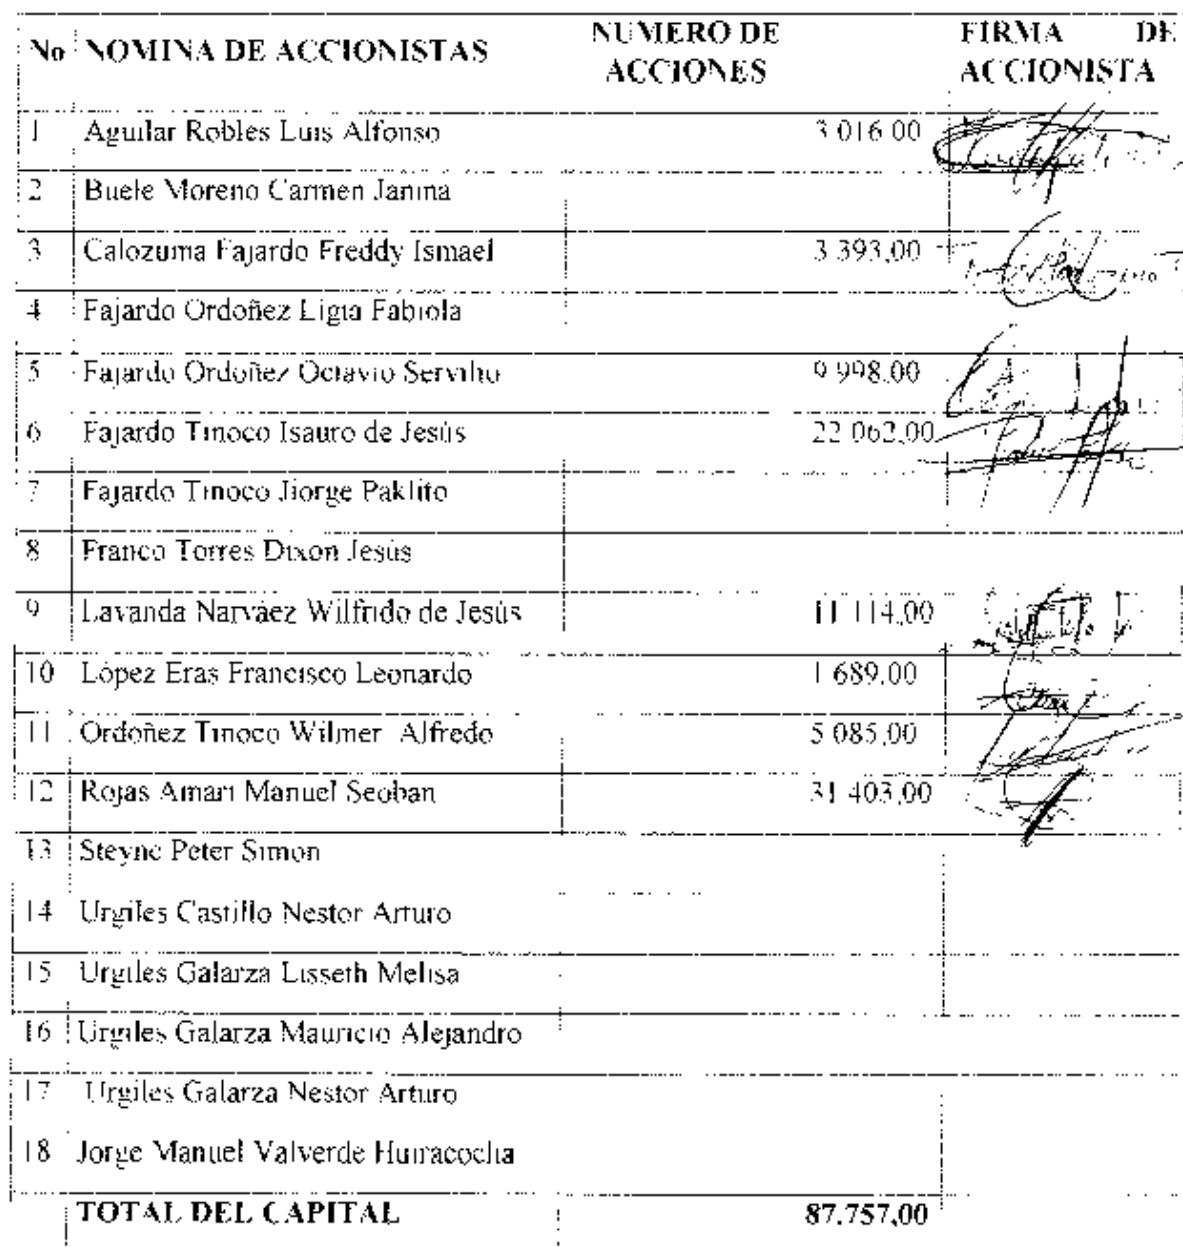 No NOMINA DE ACCIONISTAS NUMERO DE ACCIONES FIRMA DE ACCIONISTA
1 Aguilar Robles Luis Alfonso 3.016.00
2 Buele Moreno Carmen Janina
3 Calozuma Fajardo Freddy Ismael 3.393,00
4 Fajardo Ordoñez Ligia Fabiola
5 Fajardo Ordoñez Octavio Servilio 9.998.00
6 Fajardo Tinoco Isauro de Jesús 22.062,00
7 Fajardo Tinoco Jiorge Paklito
8 Franco Torres Dixon Jesús
9 Lavanda Narváez Wilfrido de Jesús 11.114,00
10 López Eras Francisco Leonardo 1.689,00
11 Ordoñez Tinoco Wilmer Alfredo 5.085,00
12 Rojas Amari Manuel Seoban 31.403,00
13 Steyne Peter Simon
14 Urgiles Castillo Nestor Arturo
15 Urgiles Galarza Lisseth Melisa
16 Urgiles Galarza Mauricio Alejandro
17 Urgiles Galarza Nestor Arturo
18 Jorge Manuel Valverde Huiracocha
TOTAL DEL CAPITAL 87.757,00